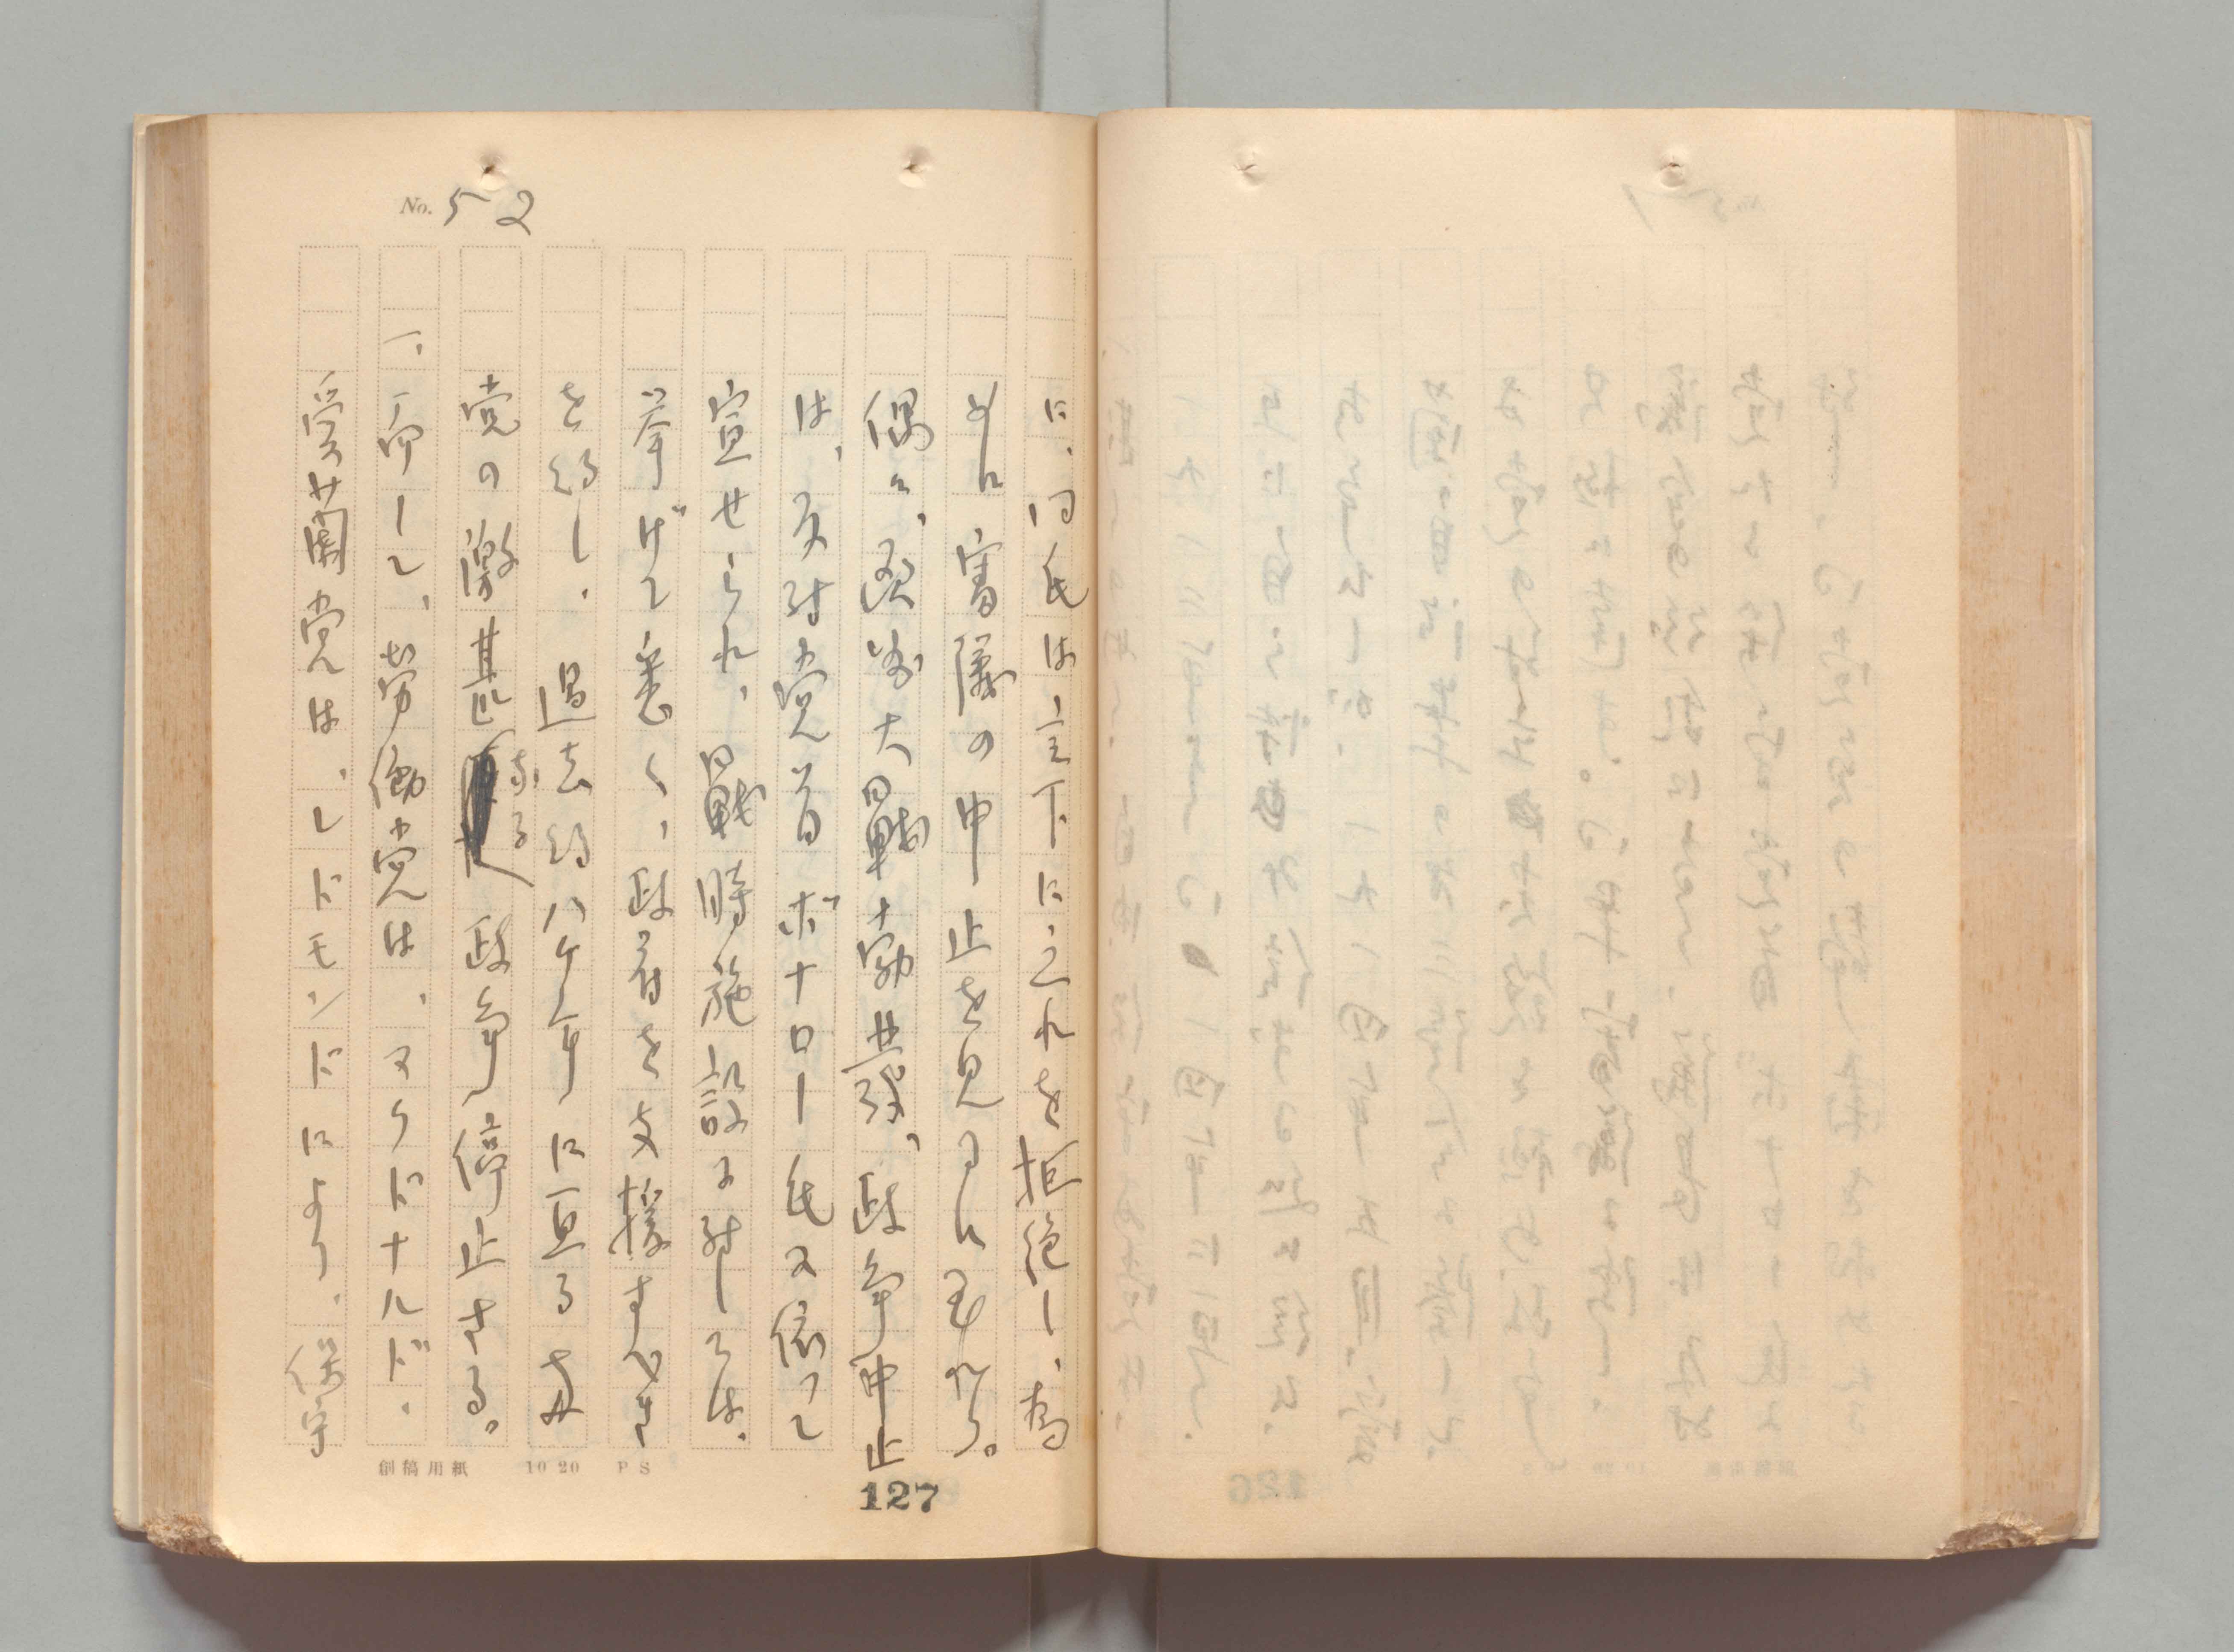 No. 52
に、同氏は言下に之れを拒絶し、為
めに審議の中止を見るに至れり。
偶々、欧洲大戦勃発、政争中止
は、反対党首ボナロー氏に依って
宣せられ、戦時施設に対しては、
挙げて悉く、政府を支援すべき
を約し、過去約八ケ年に亘る両
党の激甚なる政争停止さる。
一、而して、労働党は、マクドナルド、
愛蘭党は、レドモンドにより、保守
創稿用紙 10 20 PS
127